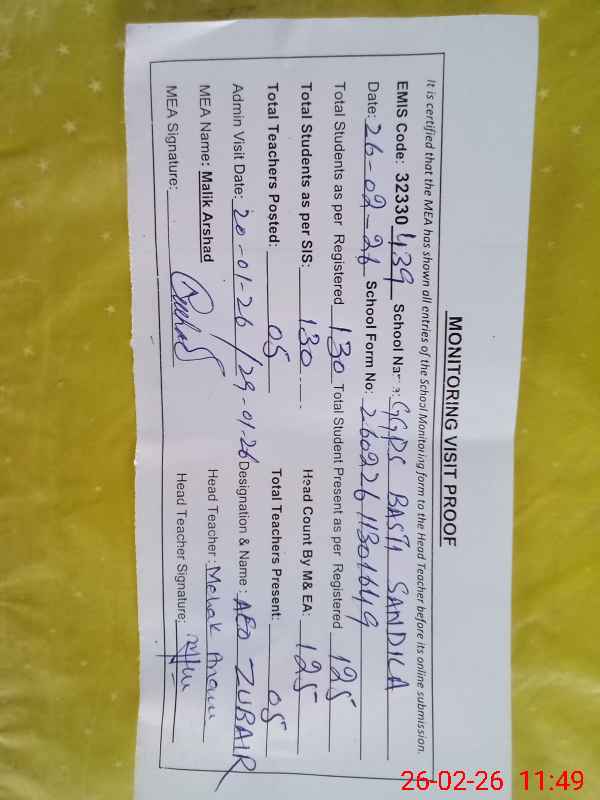 MONITORING VISIT PROOF
It is certified that the MEA has shown all entries of the School Monitoring form to the Head Teacher before its online submission.
EMIS Code: 32330439 School Name: GGPS BASTI SANDILA
Date: 26-02-26 School Form No: 26022611301649
Total Students as per Registered 130 Total Student Present as per Registered 125
Total Students as per SIS: 130 Head Count By M& EA: 125
Total Teachers Posted: 05 Total Teachers Present: 05
Admin Visit Date: 20-01-26 / 29-01-26 Designation & Name : AEO ZUBAIR
MEA Name: Malik Arshad Head Teacher : Mehak
MEA Signature: Arshad Head Teacher Signature:
26-02-26 11:49